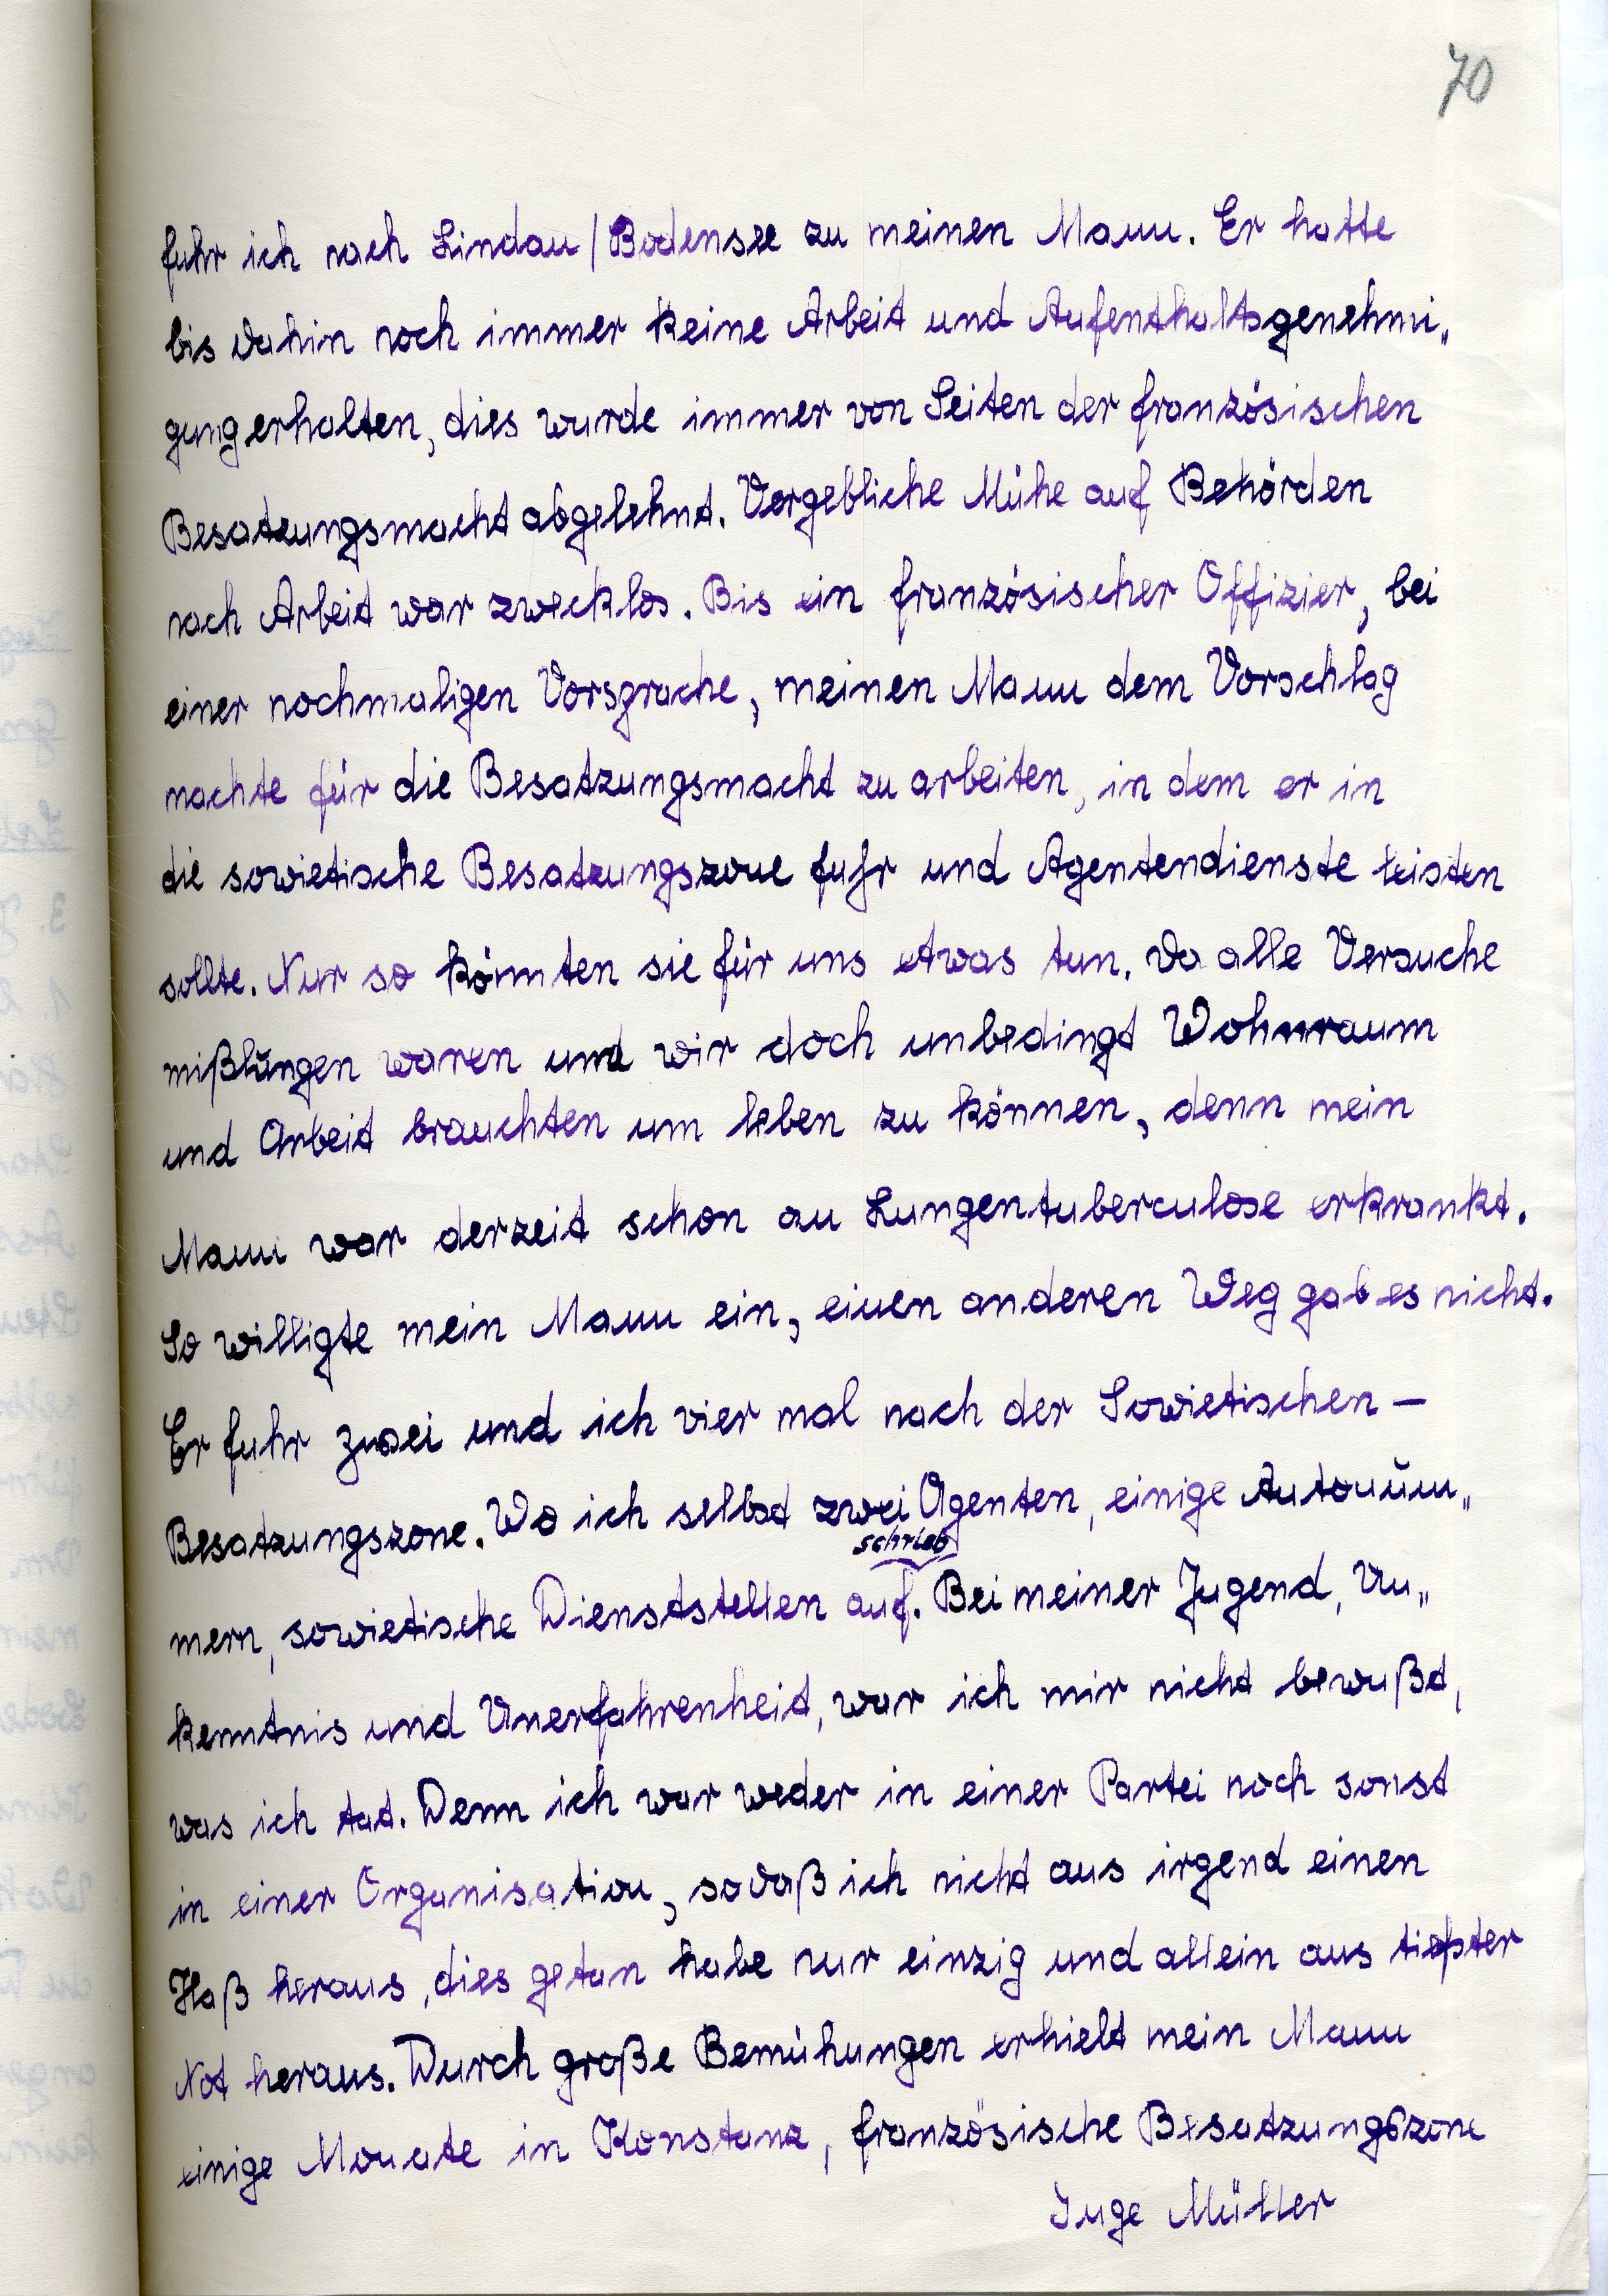 70
fuhr ich nach Lindau/Bodensee zu meinen Mann. Er hatte
bis dahin noch immer keine Arbeit und Aufenthaltsgenehmi„
gung erhalten, dies wurde immer von Seiten der französischen
Besatzungsmacht abgelehnt. Vergebliche Mühe auf Behörden
nach Arbeit war zwecklos. Bis ein französischer Offizier, bei
einer nochmaligen Vorsprache, meinen Mann dem Vorschlag
machte für die Besatzungsmacht zu arbeiten, in dem er in
die sowietische Besatzungszone fuhr und Agentendienste leisten
sollte. Nur so könnten sie für uns etwas tun. Da alle Versuche
mißlŭngen waren und wir doch unbedingt Wohnraum
und Arbeit brauchten um leben zu können, denn mein
Mann war derzeit schon an Lungentuberculose erkrankt.
So willigte mein Mann ein, einen anderen Weg gab es nicht.
Er fuhr zwei und ich vier mal nach der Sowietischen –
Besatzungszone. Wo ich selbst zwei Agenten, einige Autonŭm„
schrieb
mern, sowietische Dienststellen auf. Bei meiner Jugend, Un„
kenntnis und Unerfahrenheit, war ich mir nicht bewußt,
was ich tat. Denn ich war weder in einer Partei noch sonst
in einer Organisation, sodaß ich nicht aus irgend einen
Haß heraus, dies getan habe nur einzig und allein aus tiefster
Not heraus. Durch große Bemühungen erhielt mein Mann
einige Monate in Konstanz, französische Besatzungszone
Inge Müller